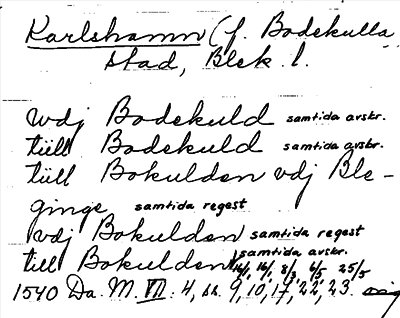 Karlshamn (f. Bodekulla
stad, Blek. l.
vdj Bodekuld samtida avskr.
tiill Bodekuld samtida avskr.
tiill Bokulden vdj Ble-
ginge samtida regest
vdj Bokulden samtida regest
till Bokulden samtida avskr.
14/1, 16/1, 8/3, 6/5 25/5
1540 Da. M. VII: 4, sn. 9, 10, 17, 22, 23.